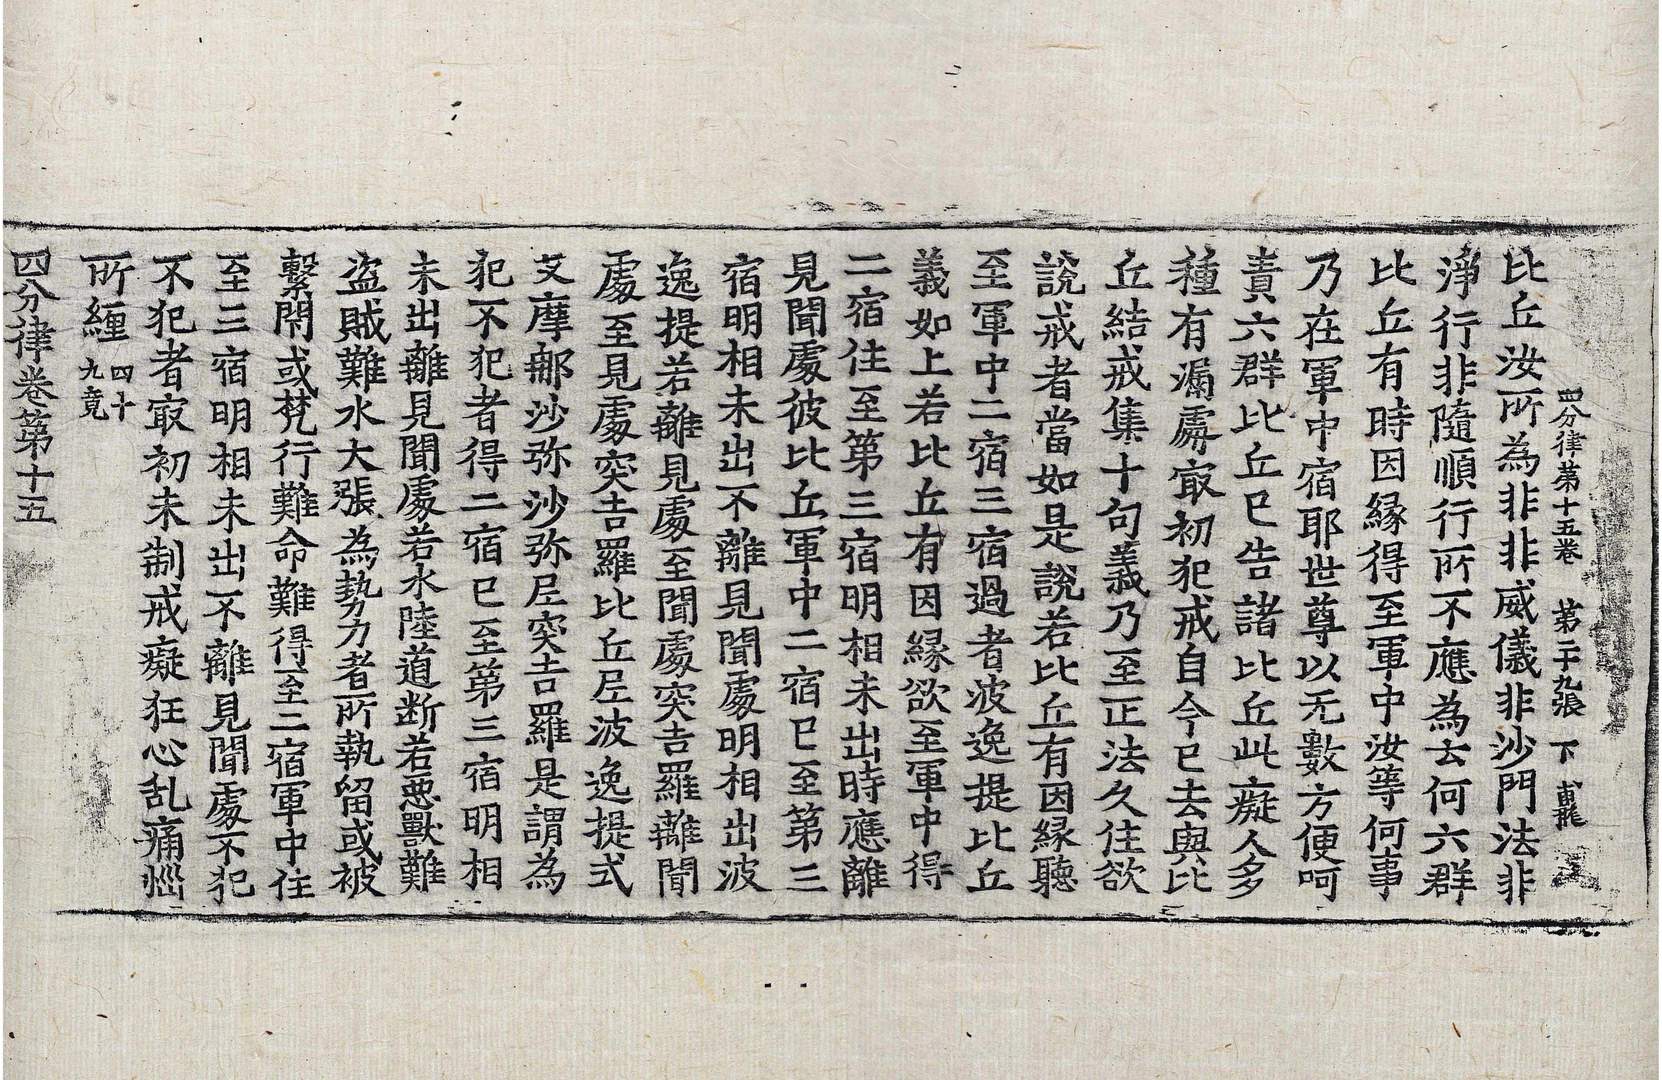 四分律第十五卷　第二十九張　下
比丘汝所為非非威儀非沙門法非
淨行非隨順行所不應為去何六群
比丘有時因縁得至軍中汝等何事
乃在軍中宿耶世尊以无數方便呵
責六群比丘巳告諸比丘此癡人多
種有漏處㝡初犯戒自今巳去與比
丘結戒集十句義乃至正法久住欲
說戒者當如是說若比丘有因縁聽
至軍中二宿三宿過者波逸提比丘
義如上若比丘有因縁欲至軍中得
二宿住至第三宿明相未出時應離
見聞處彼比丘軍中二宿巳至第三
宿明相未出不離見聞處明相出波
逸提若離見處至聞處突吉羅離聞
處至見處突吉羅比丘尼波逸提式
叉摩那沙弥沙弥尼突吉羅是謂為
犯不犯者得二宿巳至第三宿明相
未出離見聞處若水陸道斷若惡獸難
盜賊難水大張為勢力者所執留或被
繫閇或梵行難命難得至二宿軍中住
至三宿明相未出不離見聞處不犯
不犯者㝡初未制戒癡狂心乱痛惱
所纏 四十九竟
四分律卷第十五